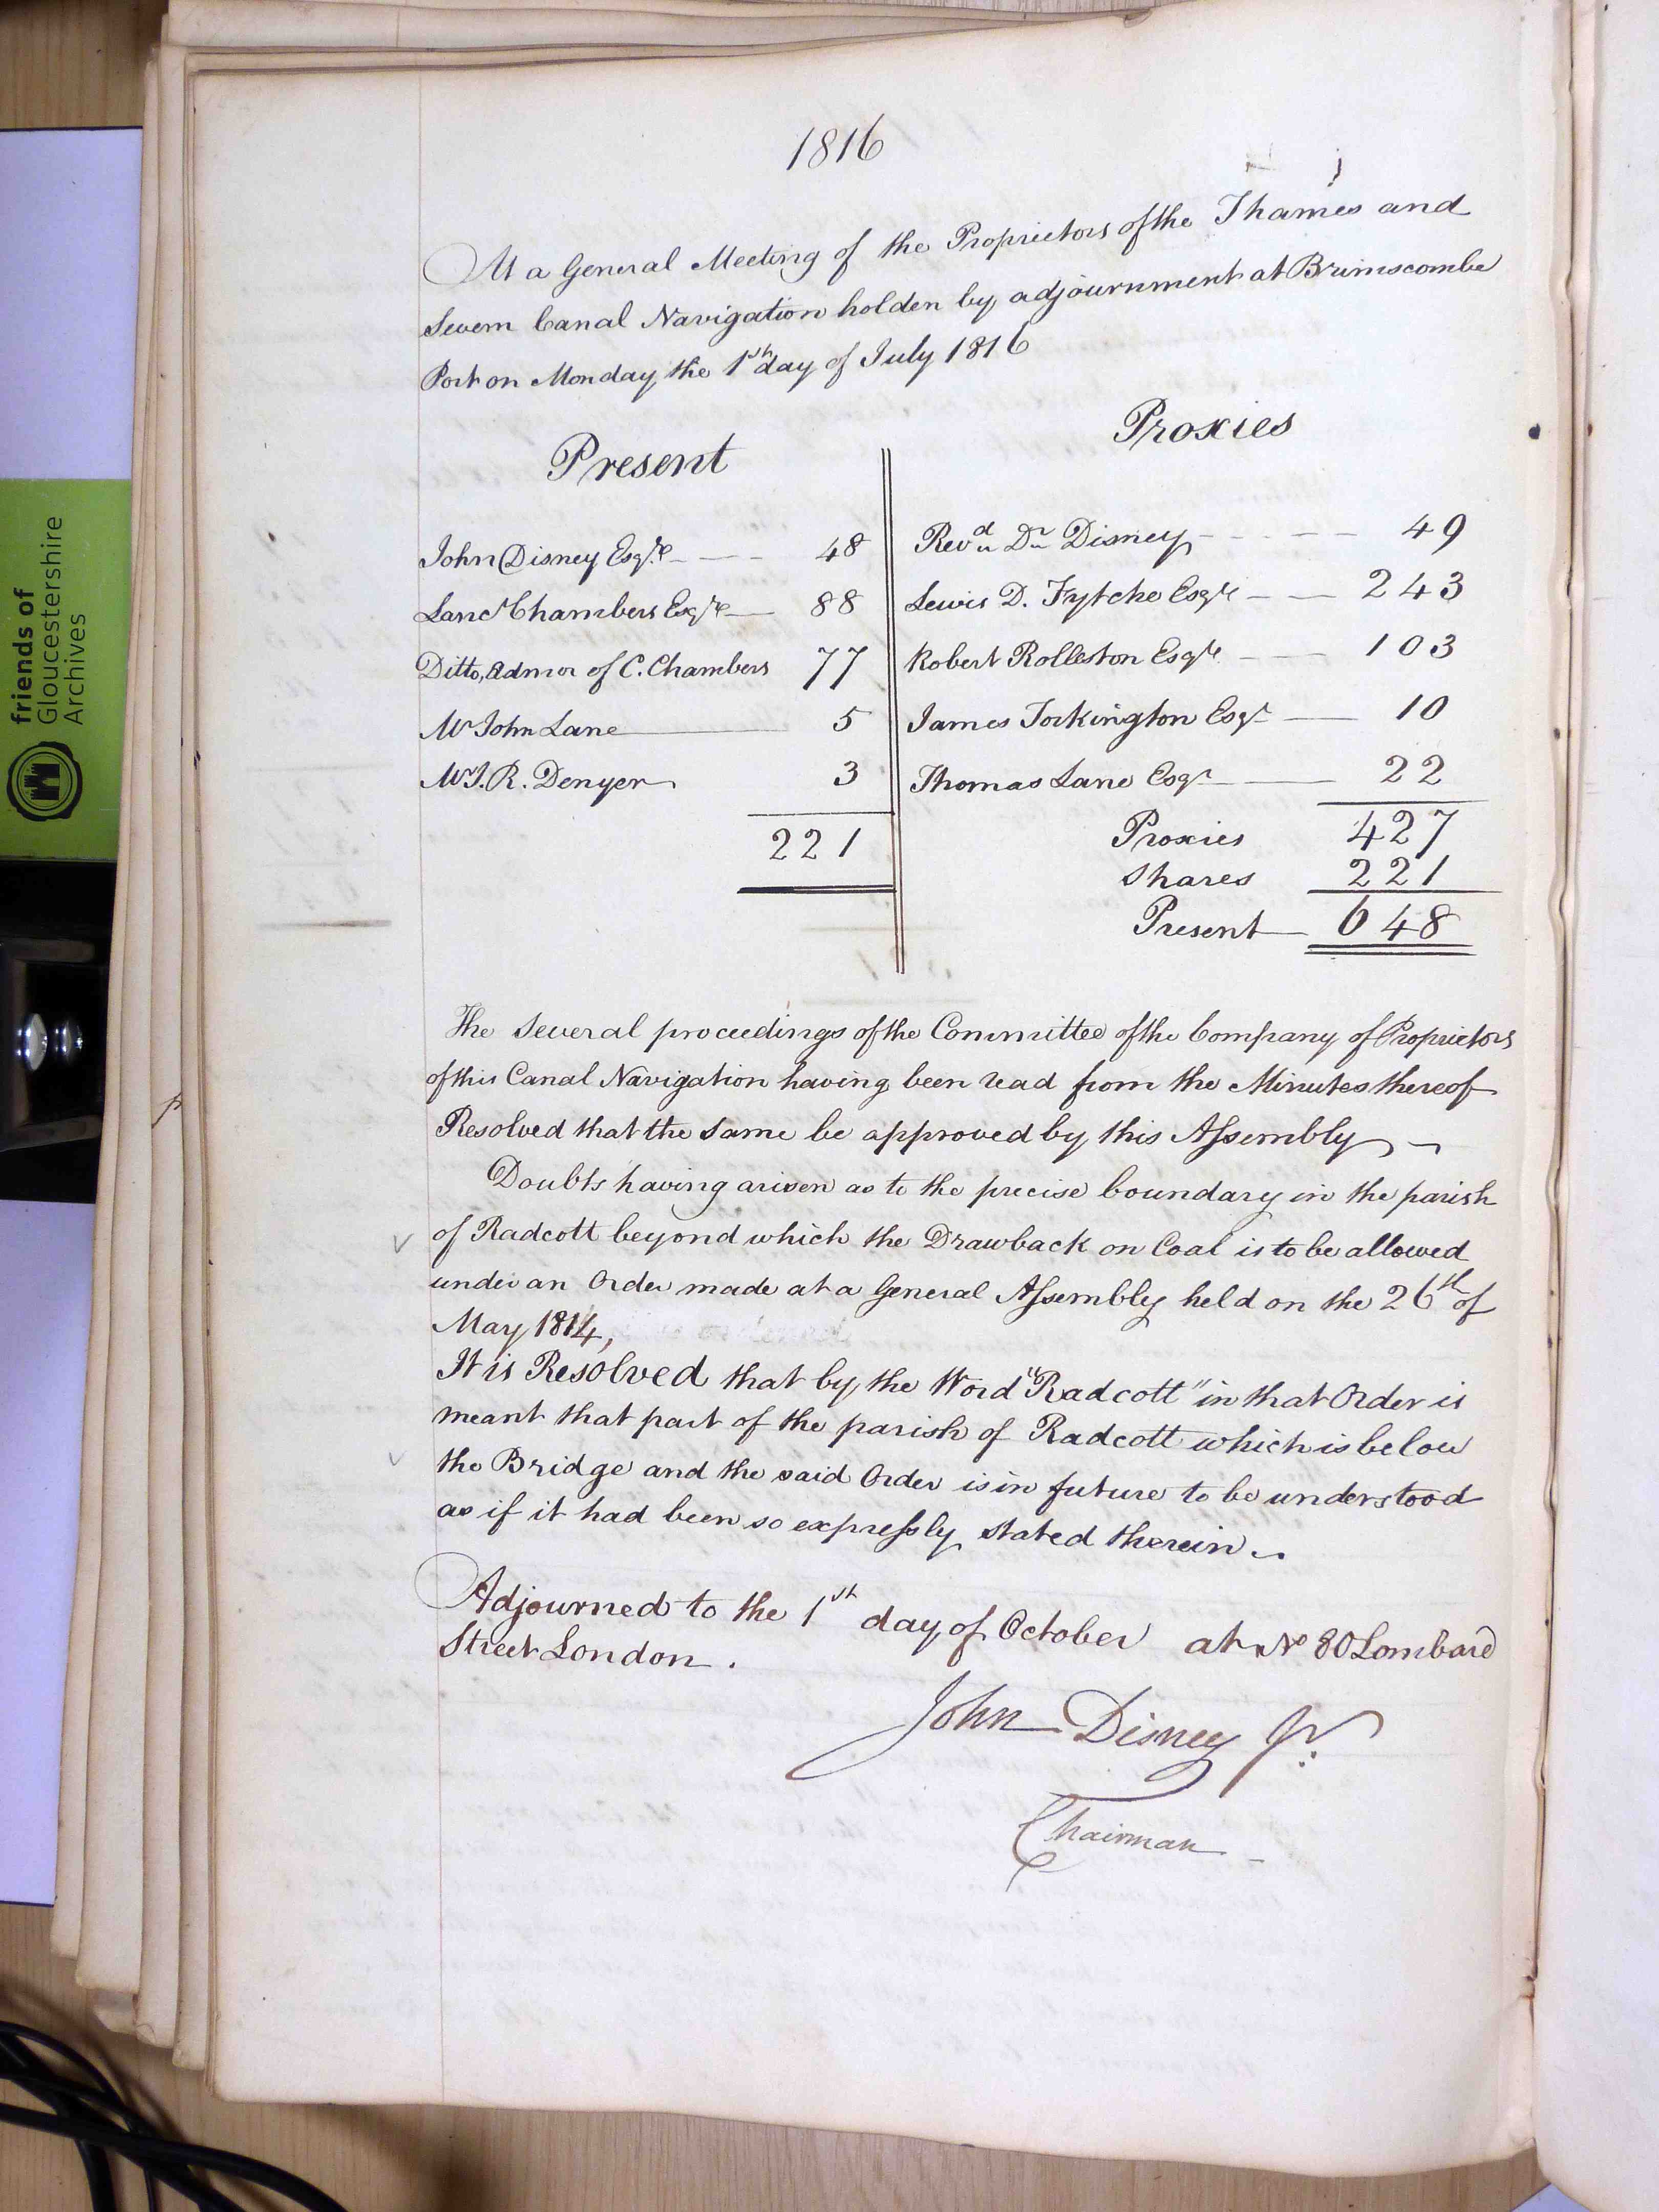 1816
At a General Meeting of the Proprietors of the Thames and
Severn Canal Navigation holden by adjournment at Brimscombe
Port on Monday the 1st day of July 1816
Present
Proxies
John Disney Esqre 48
Revd Dr Disney 49
Lanct Chambers Esqre 88
Lewis D. Fytche Esqre 243
Ditto, Admor of C. Chambers 77
Robert Rolleston Esqre 103
Mr John Lane 5
James Torkington Esqr 10
Mr J. R. Denyer 3
Thomas Lane Esqr 22
221
Proxies 427
Shares 221
Present 648
The several proceedings of the Committee of the Company of Proprietors
of this Canal Navigation having been read from the Minutes thereof
Resolved that the same be approved by this Assembly
Doubts having arisen as to the precise boundary in the parish
of Radcott beyond which the Drawback on Coal is to be allowed
under an Order made at a General Assembly held on the 26th of
May 1814,
It is Resolved that by the Word "Radcott" in that Order is
meant that part of the parish of Radcott which is below
the Bridge and the said Order is in future to be understood
as if it had been so expressly stated therein
Adjourned to the 1st day of October at No 80 Lombard
Street London.
John Disney Jr.
Chairman
friends of
Gloucestershire
Archives